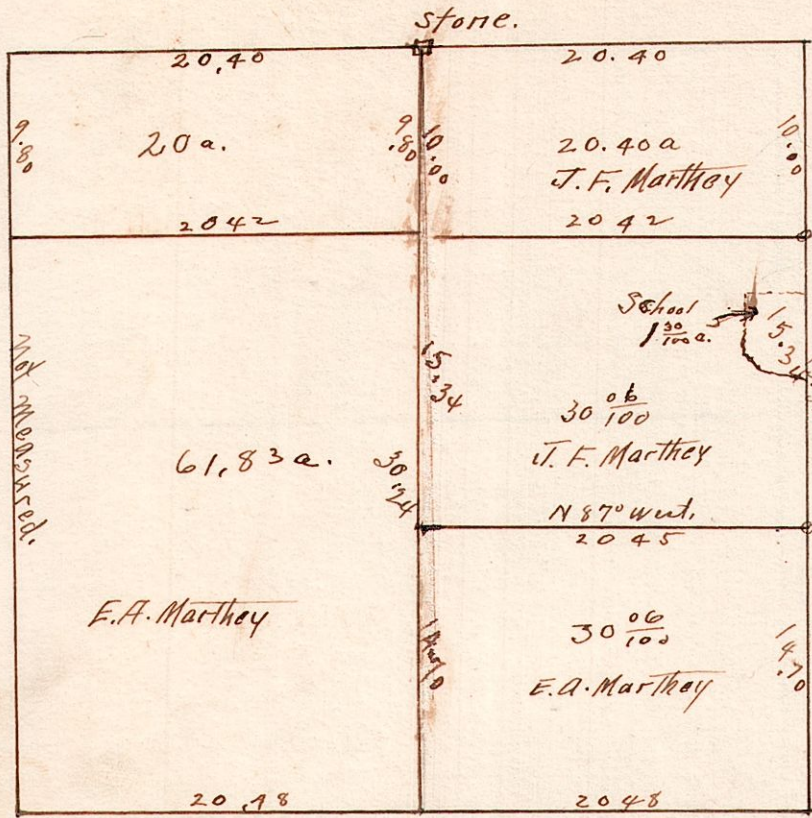 stone.
20,40
20.40
9.80
20a.
9.80
10.00
20.40a
J. F. Marthey
10.00
2042
2042
School
1 30/100 a.
15.34
15.34
30 06/100
J. F. Marthey
Not Measured.
61,83a.
30.24
N 87° West.
2045
E.A. Marthey
30 06/100
E.A. Marthey
14.70
20,48
2048